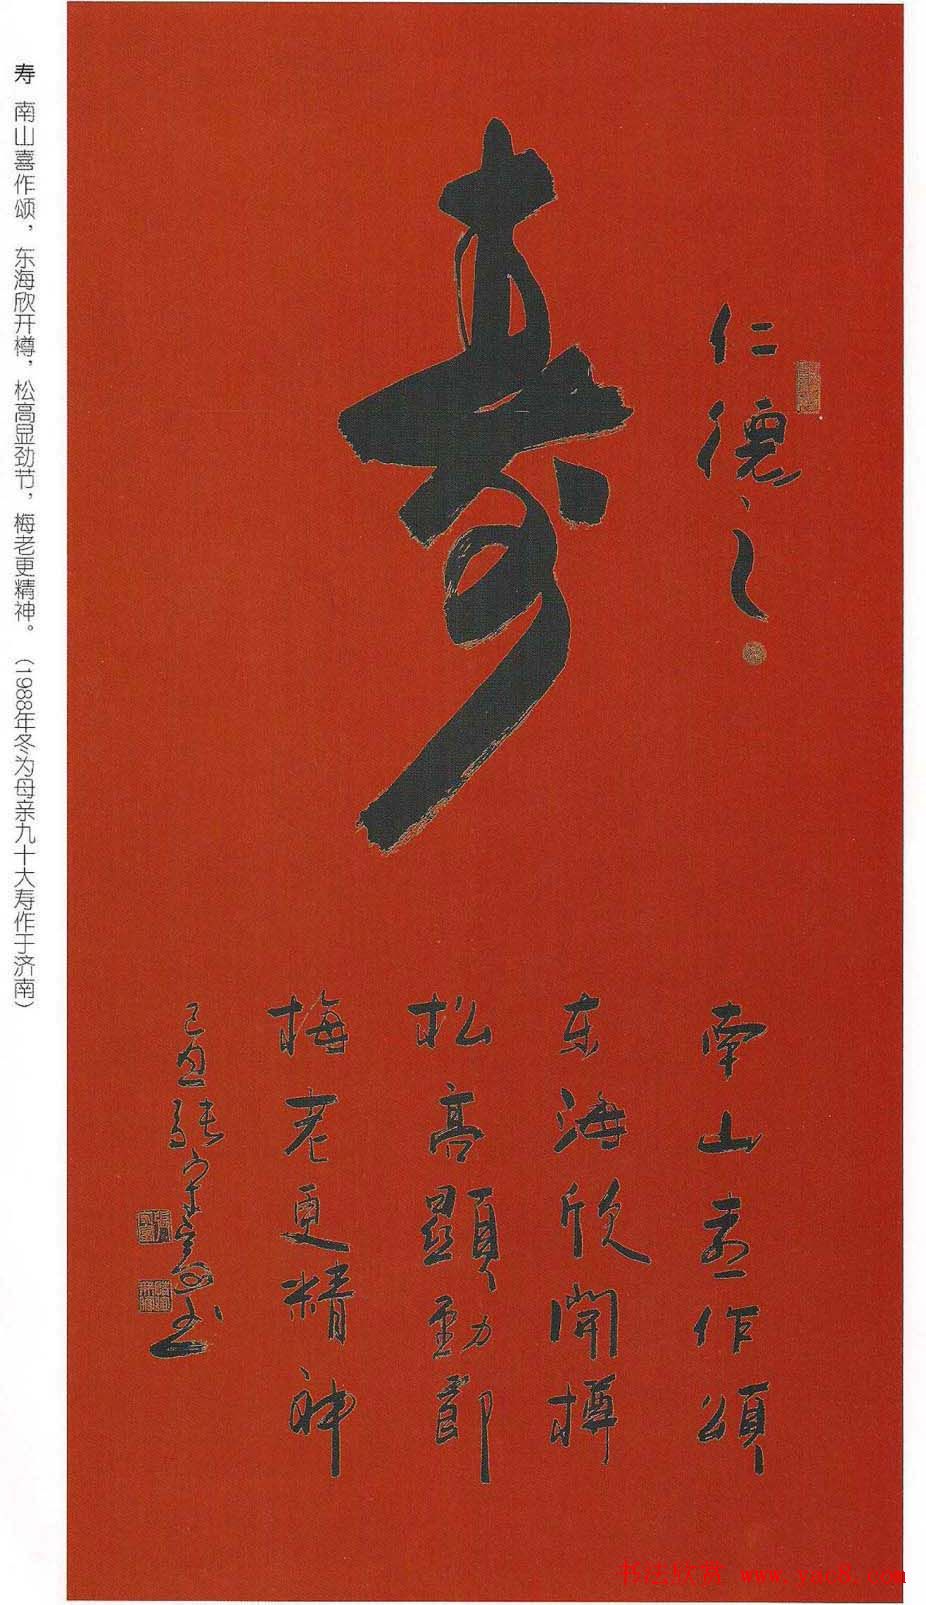 仁德之
寿
南山喜作頌
东海欣開樽
松高顯勁節
梅老更精神
寿 南山喜作颂，东海欣开樽，松高显劲节，梅老更精神。（1988年冬为母亲九十大寿作于济南）
书法欣赏 www.yac8.com